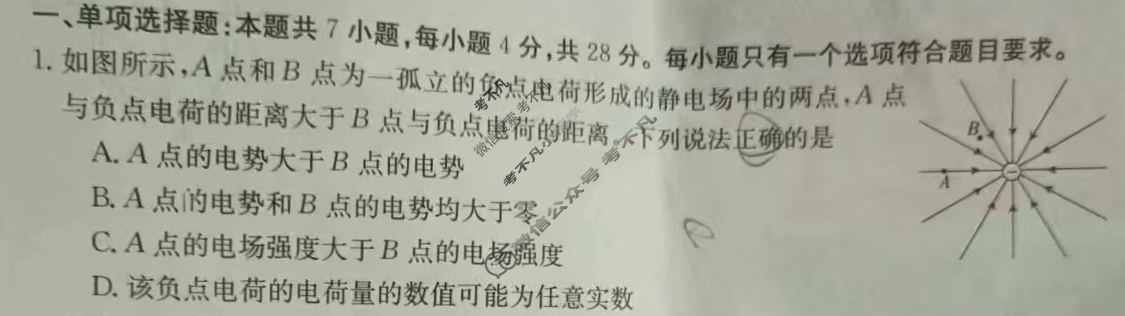 一、单项选择题:本题共 7 小题,每小题 4 分,共 28 分。每小题只有一个选项符合题目要求。
1. 如图所示,A 点和 B 点为一孤立的负点电荷形成的静电场中的两点,A 点
与负点电荷的距离大于 B 点与负点电荷的距离。下列说法正确的是
A. A 点的电势大于 B 点的电势
B. A 点的电势和 B 点的电势均大于零
C. A 点的电场强度大于 B 点的电场强度
D. 该负点电荷的电荷量的数值可能为任意实数
B
A
微信公众号考不凡
考不凡